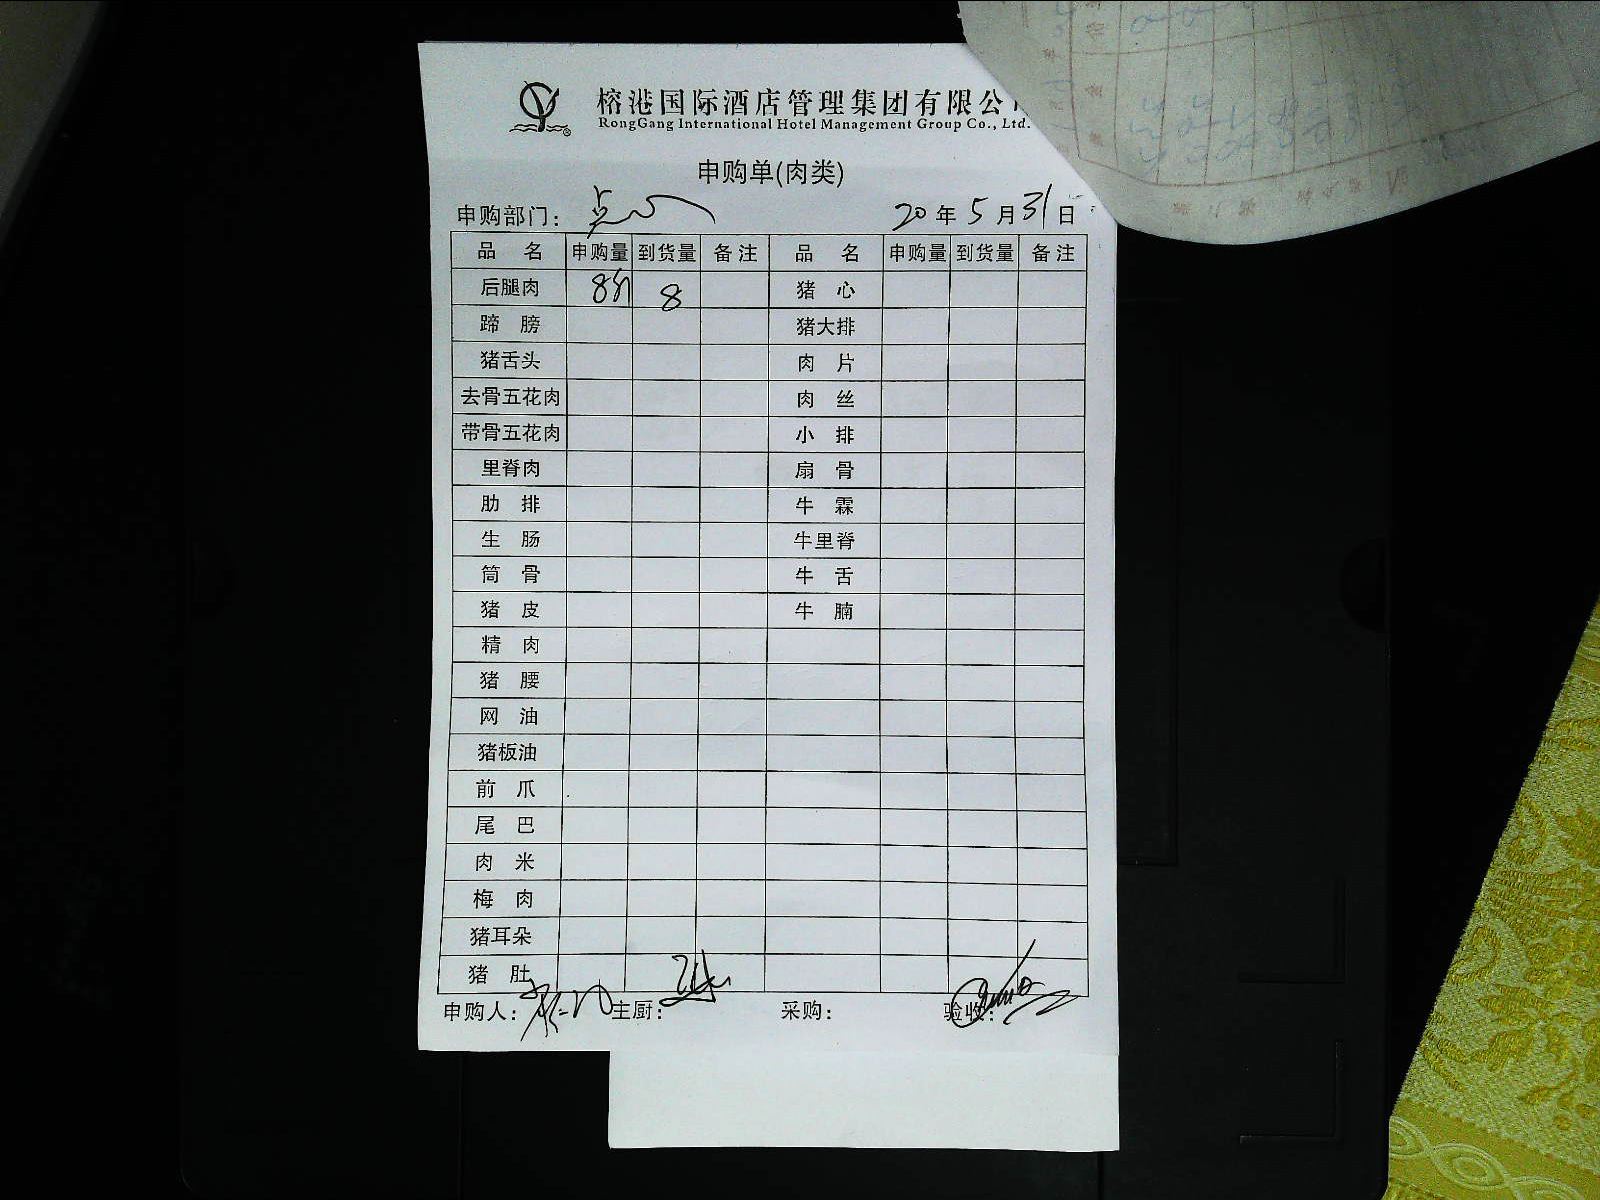 榕港国际酒店管理集团有限公
RongGang International Hotel Management Group Co., Ltd.
申购单(肉类)
申购部门: 点心 20年5月31日
品 名 申购量 到货量 备注 品 名 申购量 到货量 备注
后腿肉 8斤 8 猪 心
蹄 膀 猪大排
猪舌头 肉 片
去骨五花肉 肉 丝
带骨五花肉 小 排
里脊肉 扇 骨
肋 排 牛 霖
生 肠 牛里脊
筒 骨 牛 舌
猪 皮 牛 腩
精 肉
猪 腰
网 油
猪板油
前 爪
尾 巴
肉 米
梅 肉
猪耳朵
猪 肚
申购人: 主厨: 采购: 验收: